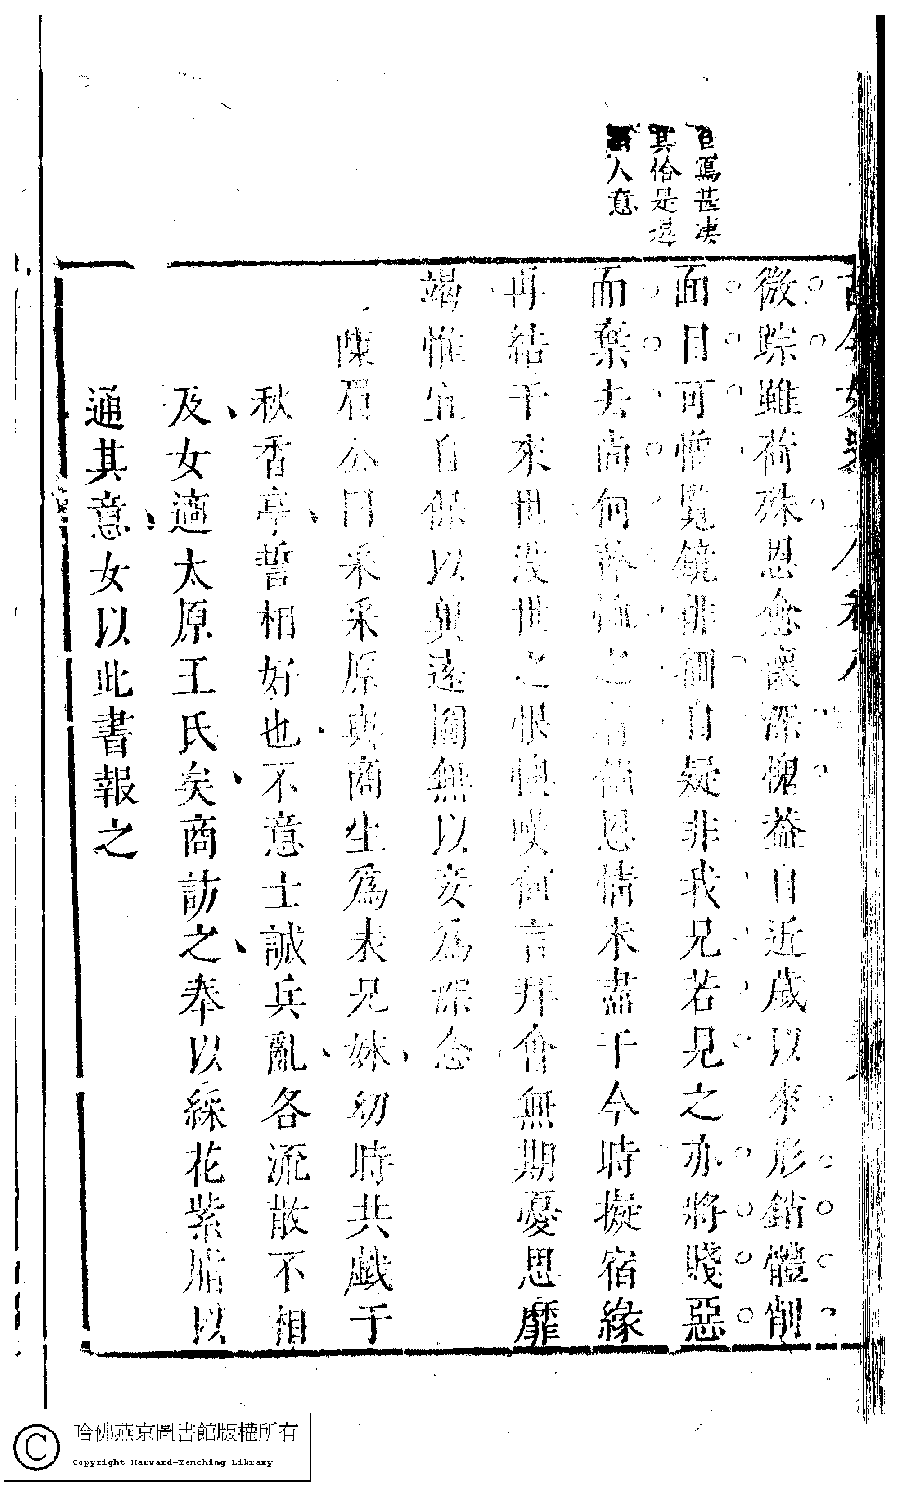 微踪雖荷殊恩愈懷深愧益自近歲以來形銷體削
面目可憎覽鏡徘徊自疑非我兄若見之亦將賤惡
而棄去尚何恤之有儻恩情未盡于今時擬宿緣
再結于來世沒世之恨懊嘆何言拜會無期憂思靡
竭惟宜自保以冀遠圖無以妾爲深念
陳眉公曰采采原與商生爲表兄妹幼時共戲于
秋香亭誓相好也不意士誠兵亂各流散不相
及女適太原王氏矣商訪之奉以綵花紫脂以
通其意女以此書報之
人意
哈佛燕京圖書館版權所有
Copyright Harvard-Yenching Library